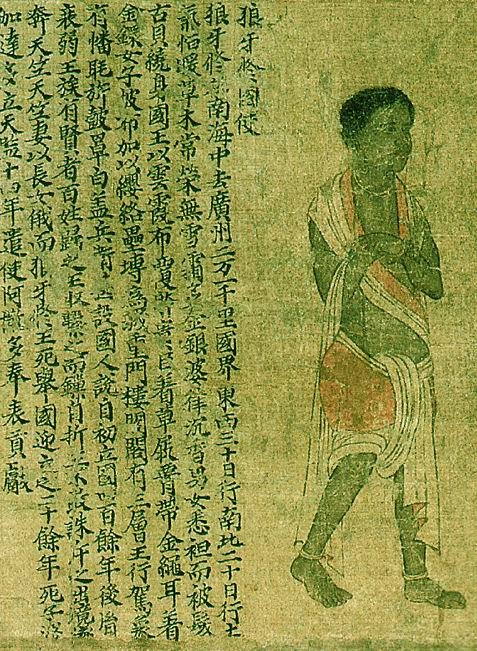 狼牙脩國使
狼牙脩在南海中去廣州二万千里國界東西三十日行南北二十日行土
氣恬暖草木常榮無雪霜多金銀婆律沉香男女悉袒而被髮
古貝繞身國王以雲霞布覆貴臣着草屐脅帶金繩耳着
金鐶女子被布加以纓絡壘塼為城重門樓閣有三層王行駕象
有幡毦旂鼓罩白盖兵衛設國人說自初立國四百餘年後嗣
衰弱王族有賢者百姓歸之王収繫之而鏁自折王不敢誅斥之出境遂
奔天竺天竺妻以長女俄而狼牙脩王死舉國迎立之二十餘年死子婆
加達多立天監十四年遣使阿撤多奉表貢獻